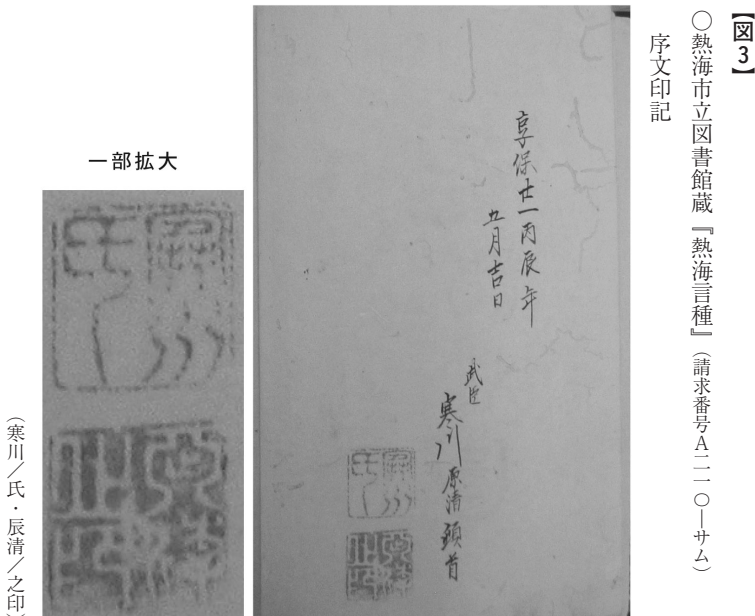 【図3】
○熱海市立図書館蔵『熱海言種』(請求番号A二一一〇―サム)
序文印記
享保廿一丙辰年
五月吉日
武臣
寒川原清頓首
一部拡大
寒川
氏
辰清
之印
(寒川/氏・辰清/之印)